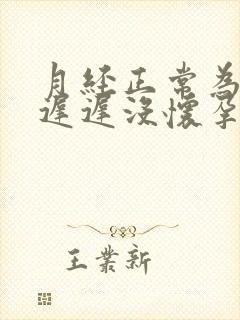 月経正常為
遲遲沒懷孕
王業新